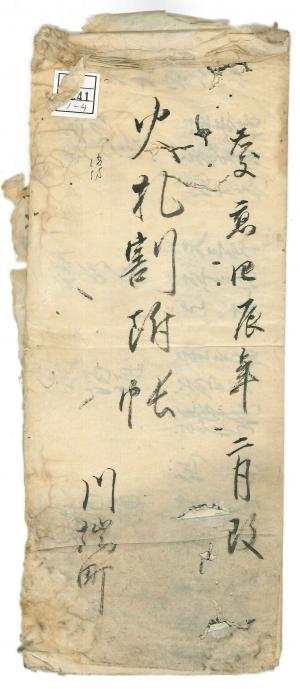 慶應四辰年二月改
火札割附帳
川端町